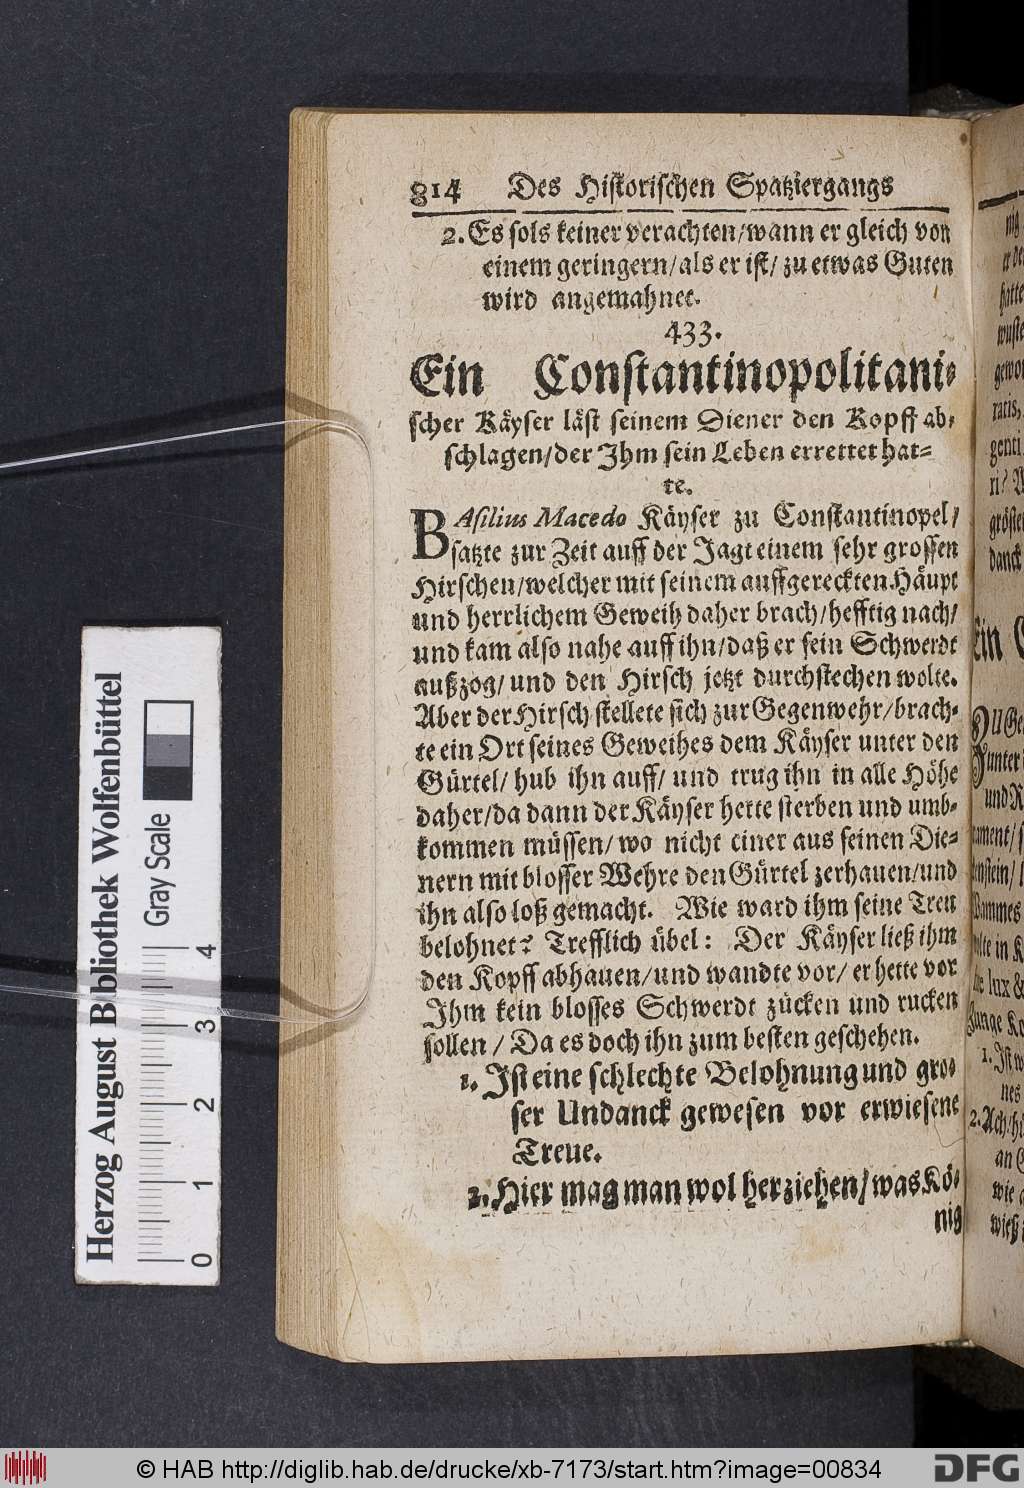 814 Des Historischen Spatziergangs
2. Es sols keiner verachten/wann er gleich von
einem geringern/als er ist/ zu etwas Guten
wird angemahnet.
433.
Ein Constantinopolitani-
scher Käyser läst seinem Diener den Kopff ab-
schlagen/der Ihm sein Leben errettet hat-
te.
BAsilius Macedo Käyser zu Constantinopel/
satzte zur Zeit auff der Jagt einem sehr grossen
Hirschen/welcher mit seinem auffgereckten Häupt
und herrlichem Geweih daher brach/hefftig nach/
und kam also nahe auff ihn/daß er sein Schwerdt
außzog/und den Hirsch jetzt durchstechen wolte.
Aber der Hirsch stellete sich zur Gegenwehr/brach-
te ein Ort seines Geweihes dem Käyser unter den
Gürtel/ hub ihn auff/ und trug ihn in alle Höhe
daher/da dann der Käyser hette sterben und umb-
kommen müssen/ wo nicht einer aus seinen Die-
nern mit blosser Wehre den Gürtel zerhauen/und
ihn also loß gemacht. Wie ward ihm seine Treu
belohnet? Trefflich übel: Der Käyser ließ ihm
den Kopff abhauen/und wandte vor/ er hette vor
Ihm kein blosses Schwerdt zücken und rucken
sollen / Da es doch ihn zum besten geschehen.
1. Ist eine schlechte Belohnung und gros-
ser Undanck gewesen vor erwiesene
Treue.
2. Hier mag man wol herziehen/was Kö-
nig
Herzog August Bibliothek Wolfenbüttel
Gray Scale
0 1 2 3 4
© HAB http://diglib.hab.de/drucke/xb-7173/start.htm?image=00834
DFG